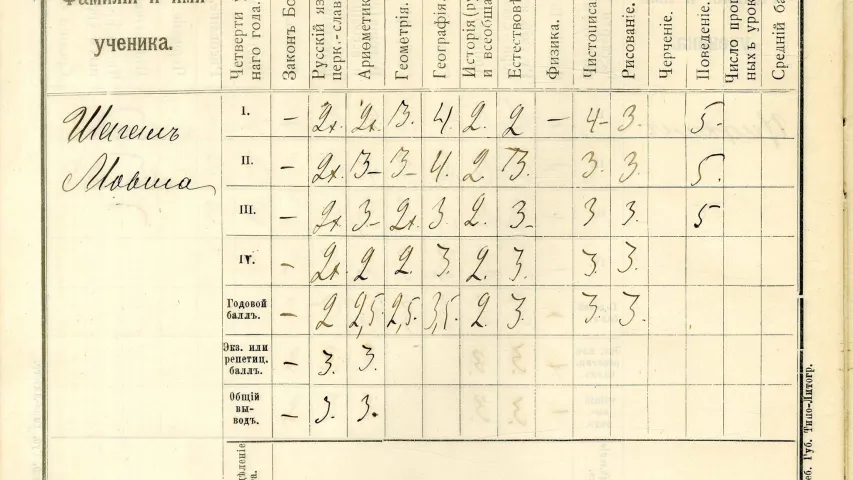 Фамилія и имя
ученика.
Четверти
наго года.
Законъ Бо
Русскій яз
церк.-слав
Ариѳметик
Геометрія.
Географія.
Исторія (ру
и всеобща
Естествовѣ
Физика.
Чистописа
Рисованіе.
Черченіе.
Поведеніе.
Число проп
ныхъ урок
Средній ба
Шагалъ
Мовша
I. – 2х. 2х. 3. 4. 2. 2 – 4– 3. 5.
II. – 2х. 3– 3– 4. 2. 3. 3. 3. 5.
III. – 2х. 3– 2х. 3. 2. 3– 3 3. 5
IV. – 2х 2 2. 3. 2. 3. 3. 3.
Годовой
баллъ. – 2 2,5. 2,5. 3,5. 2. 3. 3. 3.
Экз. или
репетиц.
баллъ. – 3. 3.
Общій
вы-
водъ. – 3. 3.
дѣленіе
а.
еб. Губ. Типо-Литогр.